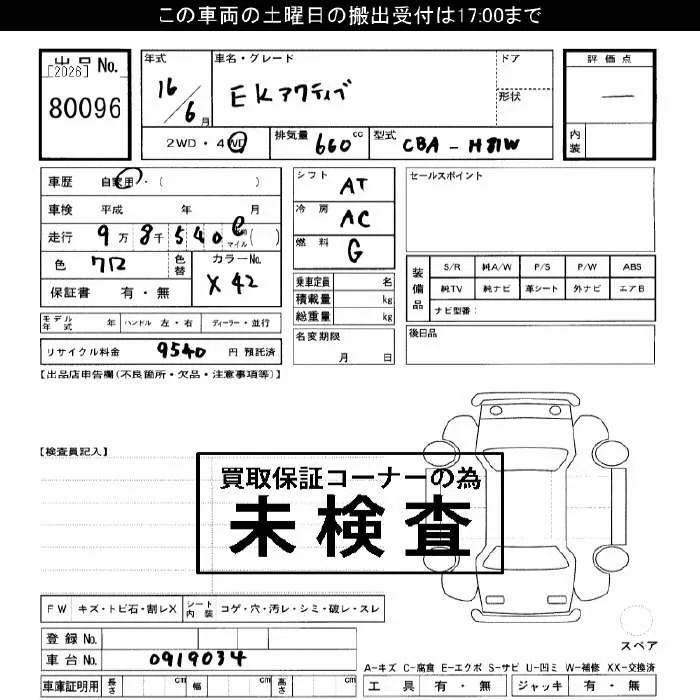 この車両の土曜日の搬出受付は17:00まで
出品 No.
[2026]
80096
年式
16/6月
車名・グレード
EKアクティブ
ドア
形状
評価点
―
内装
2WD・4WD
排気量 660 cc
型式 CBA - H81W
車歴 自家用・( )
車検 平成 年 月
走行 9万8千540 マイル( )
色 クロ
色替
カラーNo.
X42
保証書 有・無
シフト AT
冷房 AC
燃料 G
乗車定員 名
積載量 kg
総重量 kg
名変期限
月 日
セールスポイント
装備品
S/R 純A/W P/S P/W ABS
純TV 純ナビ 革シート 外ナビ エアB
ナビ型番:
後日品
モデル年式 年 ハンドル 左・右 ディーラー・並行
リサイクル料金 9540 円 預託済
【出品店申告欄(不良箇所・欠品・注意事項等)】
【検査員記入】
買取保証コーナーの為
未検査
FW キズ・トビ石・割レX シート内装 コゲ・穴・汚レ・シミ・破レ・スレ
登録 No.
車台 No. 0919034
車庫証明用 長さ cm 幅 cm 高さ cm
スペア
A-キズ C-腐食 E-エクボ S-サビ U-凹ミ W-補修 XX-交換済
工具 有・無 ジャッキ 有・無